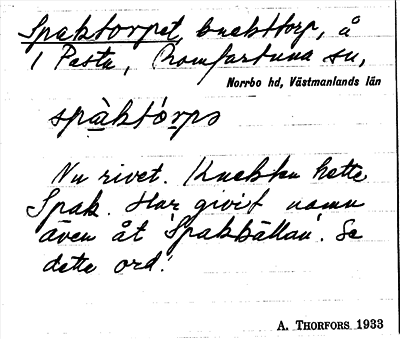 Spaktorpet, knekttorp, å
1 Pesta, Romfartuna sn,
Norrbo hd, Västmanlands län
spàktórpə
Nu rivet. Knekten hette
Spak. Har givit namn
även åt 'Spakkällan'. Se
dette ord!
A. THORFORS 1933